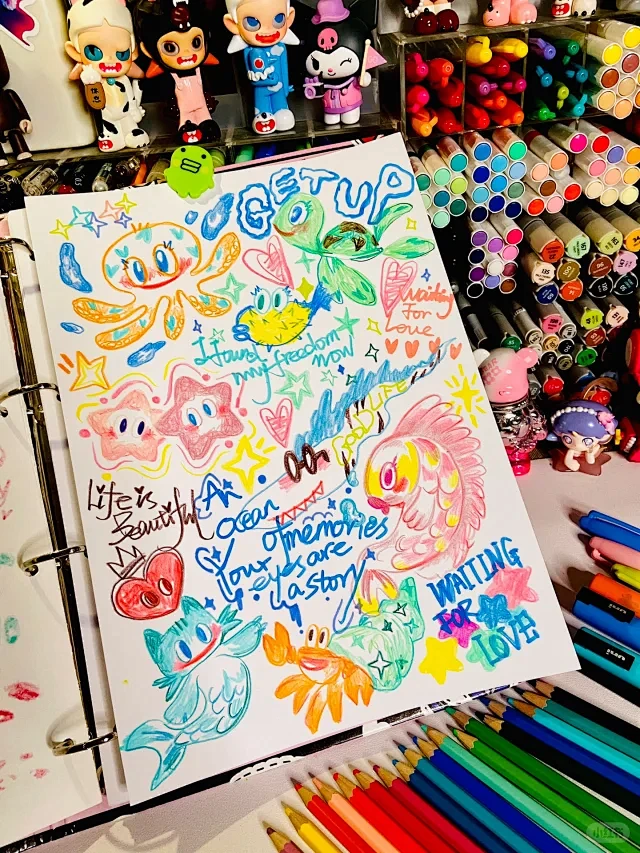 GET UP
waiting
for
Love
I found
my freedom
now
GOOD LIFE
Life is
Beautiful
An
ocean
of memories
Your
eyes are
a story
WAITING
FOR
LOVE
休息
135
小红书